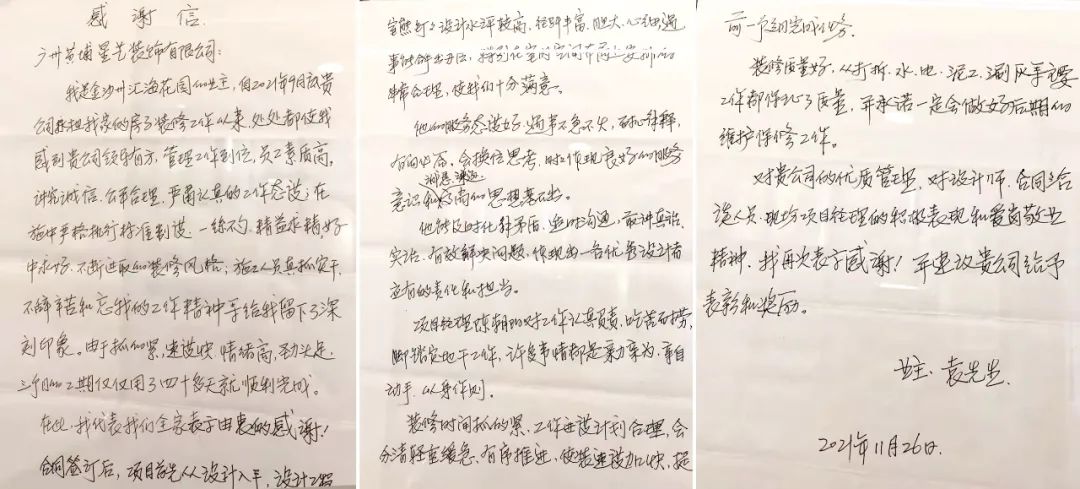 感谢信
广州黄埔星艺装饰有限公司:
我是金沙州汇海花园的业主,自2021年9月试贵
公司承担我家的房子装修工作以来,处处都使我
感到贵公司经营有方,管理工作到位,员工素质高。
讲究诚信、公平合理、严肃认真的工作态度;在
施中严格执行标准到谈、一丝不苟、精益求精,好
中求好、不断进取的装修风格;施工人员真抓实干、
不辞辛苦和忘我的工作精神等给我留下了深
刻印象。由于抓的紧,速度快,情绪高,劲头足,
三个月的工期仅仅用了四十多天就顺利完成。
在此,我代表我们全家表示由衷的感谢!
合同签订后,项目首先从设计入手,设计
设计水平较高,经验丰富、胆大、心细,遇
事
非常合理,使我们十分满意。
他的服务态度好,遇事不急不火,耐心待释,
有问必答,会换位思考,对工作现良好的服务
意识和高尚的思想
他能及时化解矛盾、及时沟通,最讲真诚、
实话、有效解决问题,体现出一名优秀设计者
应有的责任和担当。
项目经理陈朝明对工作认真负责,吃苦耐劳,
脚踏实地干工作,许多事情都是亲力亲为,亲自
动手,以身作则。
装修时间抓的紧,工作进度计划合理,会
分清轻重缓急,有序推进,使装速度加快,提
前一个月完成任务。
装修质量好,从打拆、水、电、泥工、涮灰等主要
工作都保证了质量,并承诺一定会做好后期的
维护保修工作。
对贵公司的优质管理,对设计师、合同洽
谈人员、现场项目经理的积极表现和爱岗敬业
精神,我再次表示感谢!并建议贵公司给予
表彰和奖励。
业主:袁先生
2021年11月26日.